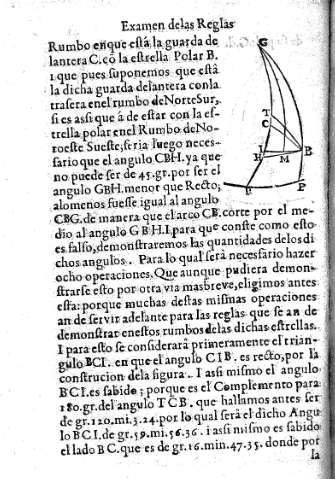 Examen de las Reglas
Rumbo en que està la guarda de
lantera C. cō la estrella Polar B.
i que pues suponemos que està
la dicha guarda delantera con la
trasera en el rumbo de Norte Sur,
si es assi que à de estar con la es-
trella polar en el Rumbo de No-
roeste Sueste; seria luego neces-
sario que el angulo CBH. ya que
no puede ser de 45. gr. por ser el
angulo GBH. menor que Recto;
alomenos fuesse igual al angulo
CBG. de manera que el arco CB. corte por el me-
dio al angulo GBH. I para que conste como esto
es falso, demonstraremos las quantidades de los di
chos angulos. Para lo qual serà necessario hazer
ocho operaciones. Que aunque pudiera demon-
strarse esto por otra via mas breve, eligimos antes
esta: porque muchas destas mismas operaciones
an de servir adelante para las reglas que se an de
demonstrar en estos rumbos de las dichas estrellas.
I para esto se considerarà primeramente el trian-
gulo BCI. en que el angulo CIB. es recto, por la
construcion dela figura. I assi mismo el angulo
BCI. es sabido; porque es el Complemento para
180. gr. del angulo TCB. que hallamos antes ser
de gr. 120. mi. 3. 24. por lo qual serà el dicho Angu
lo BCI. de gr. 59. mi. 56. 36. i assi mismo es sabido
el lado BC. que es de gr. 16. min. 47. 35. donde por
la
G
T
C
I
H
M
B
P